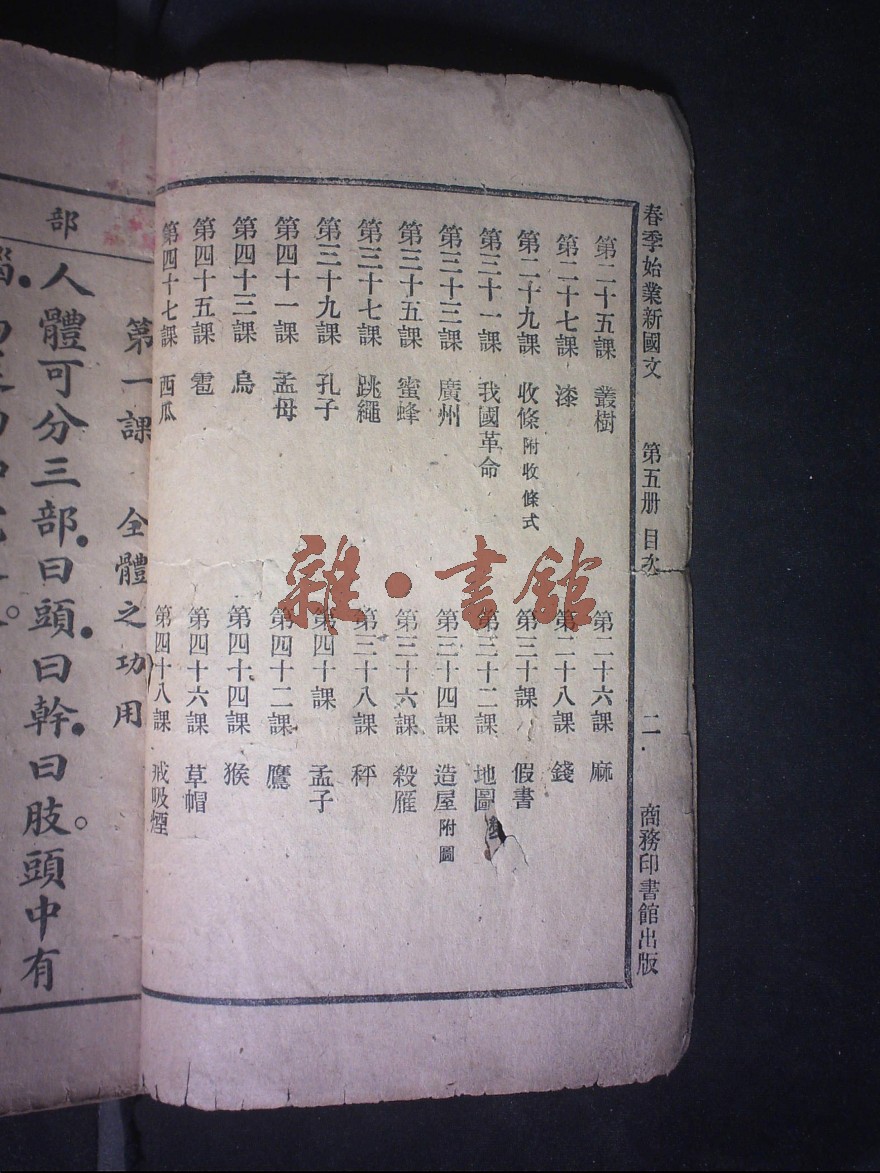 春季始業新國文 第五册 目次 二 商務印書館出版
第二十五課 叢樹
第二十六課 麻
第二十七課 漆
第二十八課 錢
第二十九課 收條附收條式
第三十課 假書
第三十一課 我國革命
第三十二課 地圖
第三十三課 廣州
第三十四課 造屋附圖
第三十五課 蜜蜂
第三十六課 殺雁
第三十七課 跳繩
第三十八課 秤
第三十九課 孔子
第四十課 孟子
第四十一課 孟母
第四十二課 鷹
第四十三課 烏
第四十四課 猴
第四十五課 雹
第四十六課 草帽
第四十七課 西瓜
第四十八課 戒吸煙
雜·書館
部
第一課 全體之功用
人體可分三部曰頭曰幹曰肢。頭中有